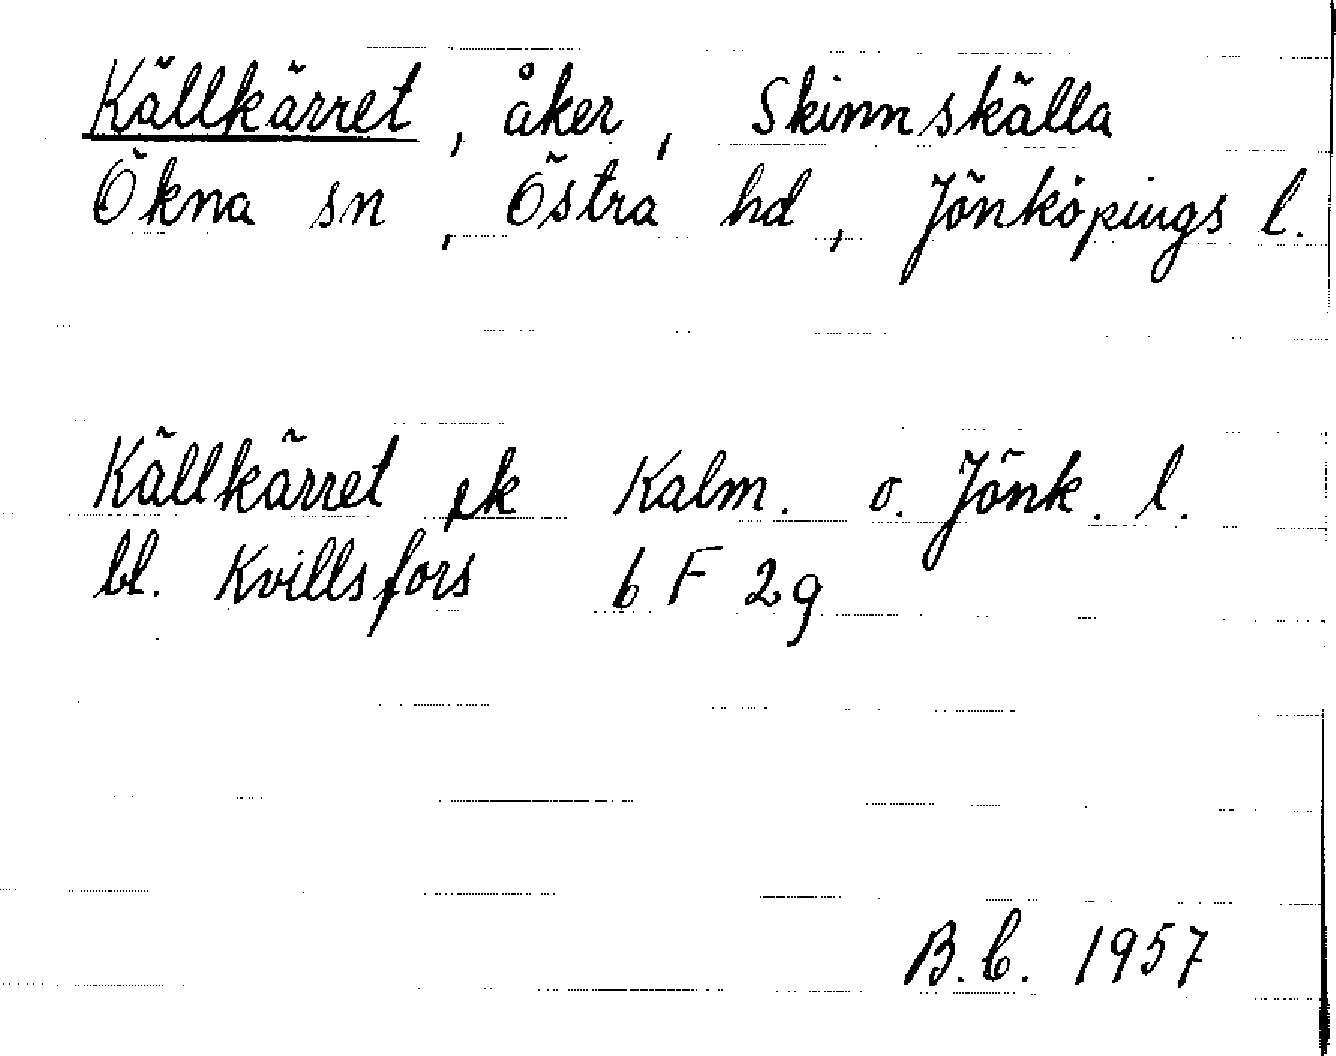 Källkärret, åker, Skinnskälla
Ökna sn, Östra hd, Jönköpings l.
Källkärret ek Kalm. o. Jönk. l.
bl. Kvillsfors 6 F 2g
B.C. 1957